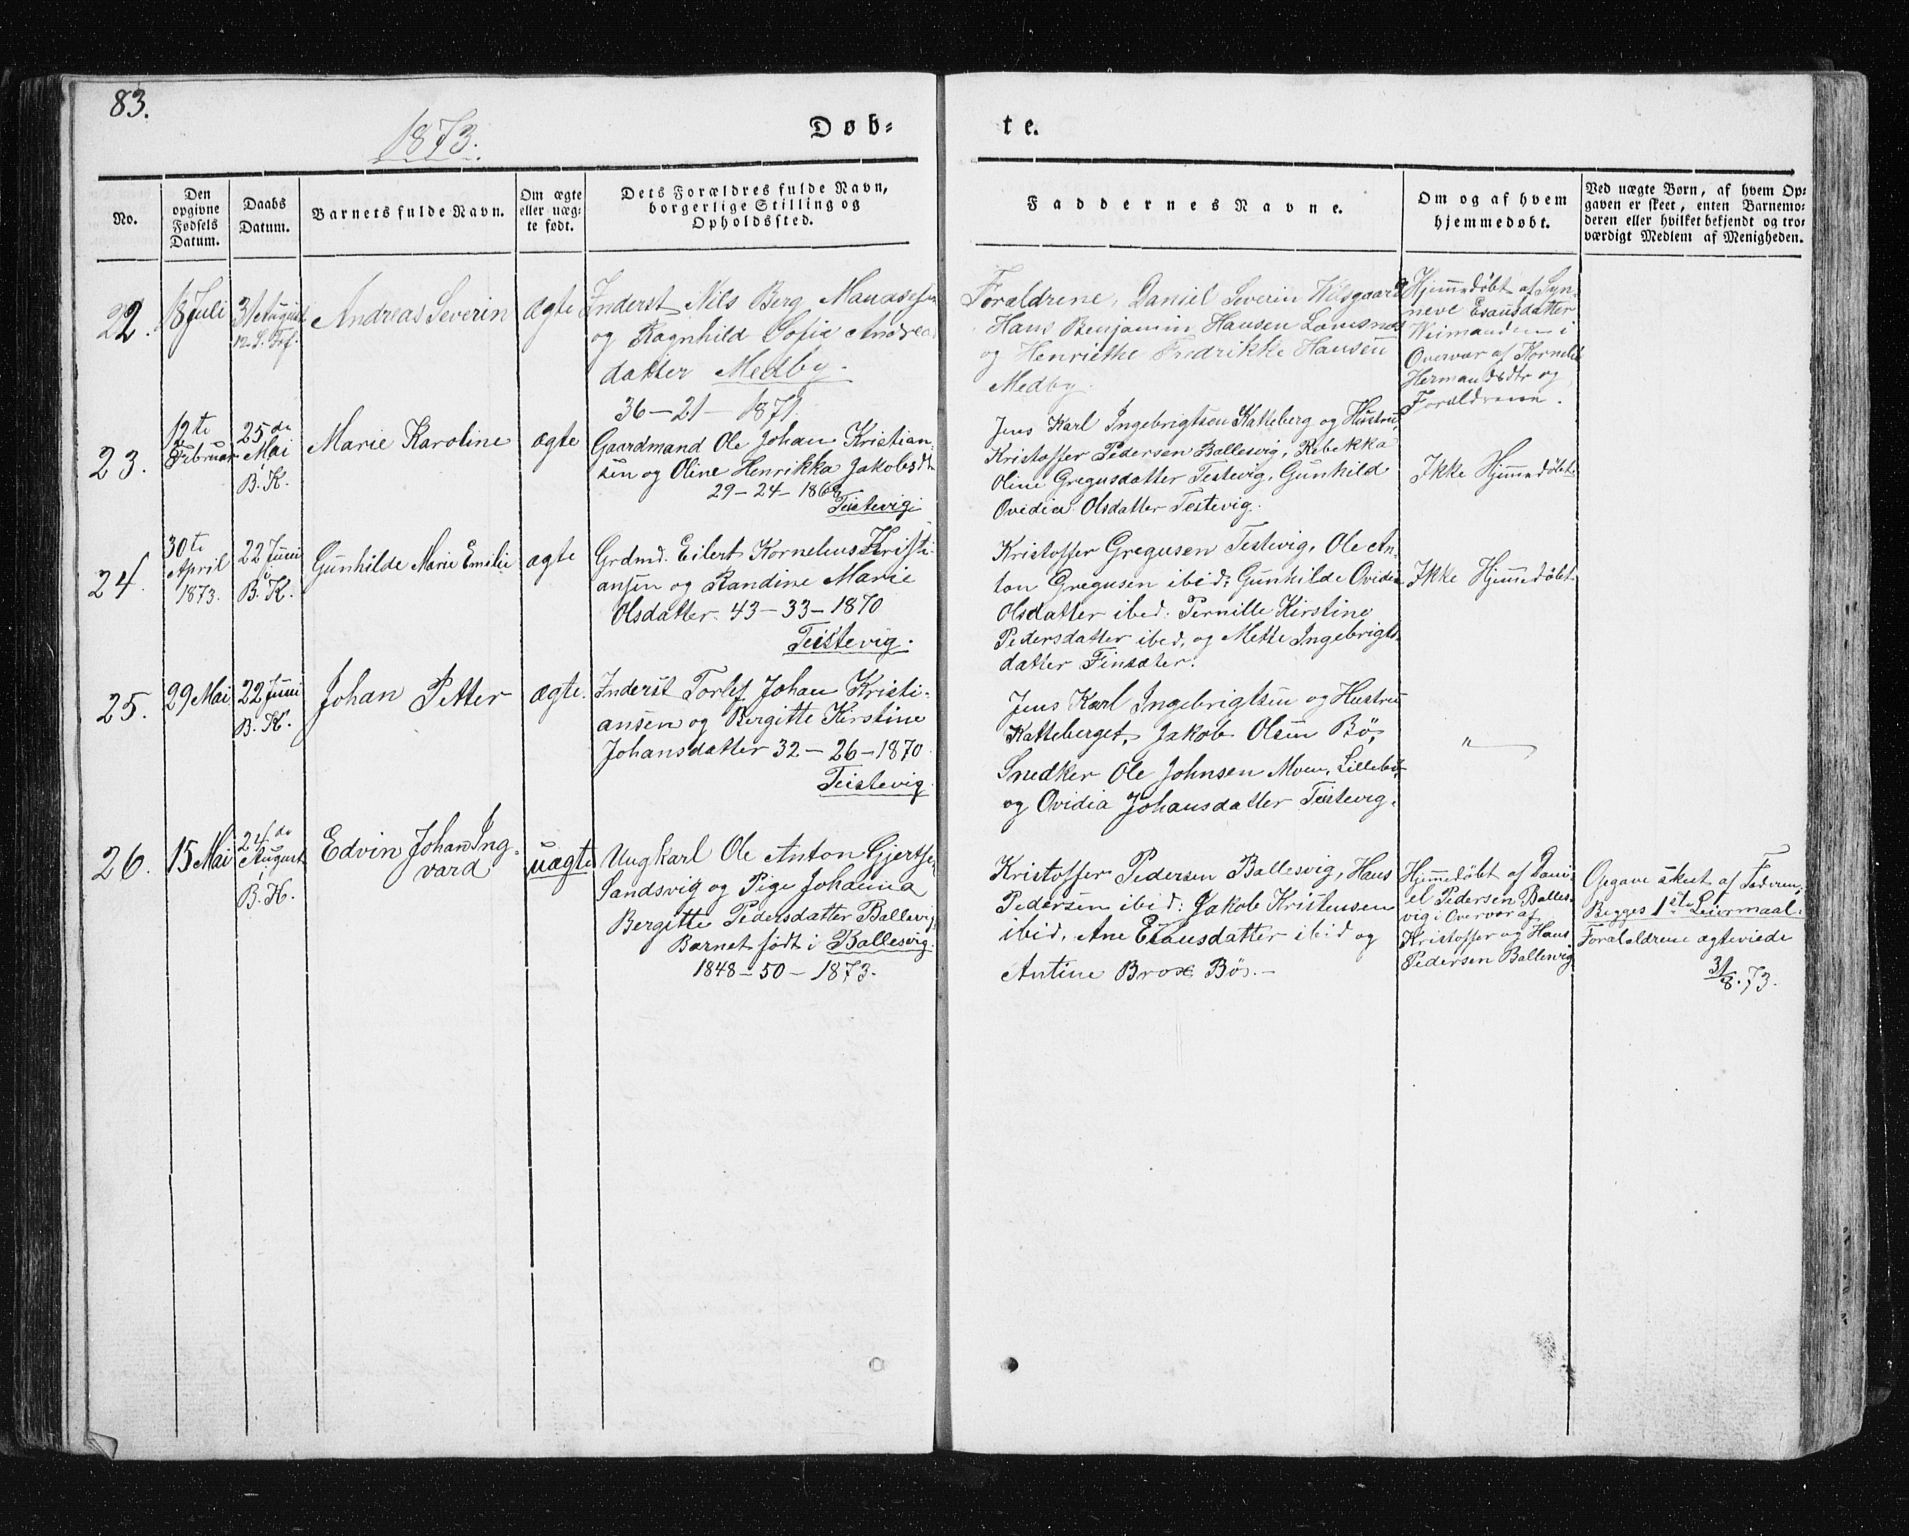 83.
1873.
Døb=
te.
No.
Den opgivne Fødsels Datum.
Daabs Datum.
Barnets fulde Navn.
Om ægte eller uæg= te født.
Dets Forældres fulde Navn, borgerlige Stilling og Opholdssted.
Faddernes Navne.
Om og af hvem hjemmedøbt.
Ved uægte Børn, af hvem Op= gaven er skeet, enten Barnemo= deren eller hvilket bekjendt og tro= værdigt Medlem af Menigheden.
22.
18 Juli
31 August
12 S. Tref.
Andreas Severin
ægte
Inderst Nils Berg
og Ragnhild Sofia Andrea
datter Medby.
36-21-1871.
Forældrene, Daniel Severin
Hans Benjamin Hansen
og Henriette Fredrikke Hansen
Medby.
Hjemmedøbt af Syn-
neve Esausdatter
i
Overvær af Kornelia
Hermansdtr og
Forældrene.
23.
12te
Februar
25de
Mai
i
B. K.
Marie Karoline
ægte
Gaardmand Ole Johan Kristian-
sen og Oline Henrikka Jakobsdtr
29-24-1868
Teistevig
Jens Karl Ingebrigtsen Katteberg og Hustru,
Kristoffer Pedersen Ballesvig, Rebekka
Oline Gregusdatter Testevig, Gunhild
Ovidia Olsdatter Testevig.
Ikke Hjemmedøbt
24.
30te
April
1873.
22 Juni
i
B. K.
Gunhilde Marie Emilie
ægte
Grdmd. Eilert Kornelius Kristi-
ansen og Randine Marie
Olsdatter 43-33-1870
Teistevig.
Kristoffer Gregusen Testevig, Ole An-
ton Gregusen ibid; Gunhilde Ovidia
Olsdatter ibid. Pernille Kirstine
Pedersdatter ibid, og Mette Ingebrigts-
datter Finsæter.
Ikke Hjemmedøbt
25.
29 Mai
22 Juni
B. K.
Johan Petter
ægte.
Inderst Torlef Johan Kristi-
ansen og Bergitte Kirstine
Johansdatter 32-26-1870.
Teistevig
Jens Karl Ingebrigtsen og Hustru
Katteberget, Jakob Olsen Bø,
Snedker Ole Johnsen Moen,
og Ovidia Johansdatter Teistevig.
"
26.
15 Mai
24de
August
i
B. K.
Edvin Johan Ing-
vard
uægte
Ungkarl Ole Anton Gjertsen
Sandsvig og Pige Johanna
Bergitte Pedersdatter Ballesvig
Barnet født i Ballesvig
1848-50-1873.
Kristoffer Pedersen Ballesvig, Hans
Pedersen ibid; Jakob Kristensen
ibid, Ane Esausdatter ibid og
Antine Brox Bø.
Hjemmedøbt af Dani-
el Pedersen Balles-
vig i Overvær af
Kristoffer og Hans
Pedersen Ballesvig
Opgave skeet af Faderen,
Begges 1ste Leiermaal.
Forældrene ægteviede
31/8.73.